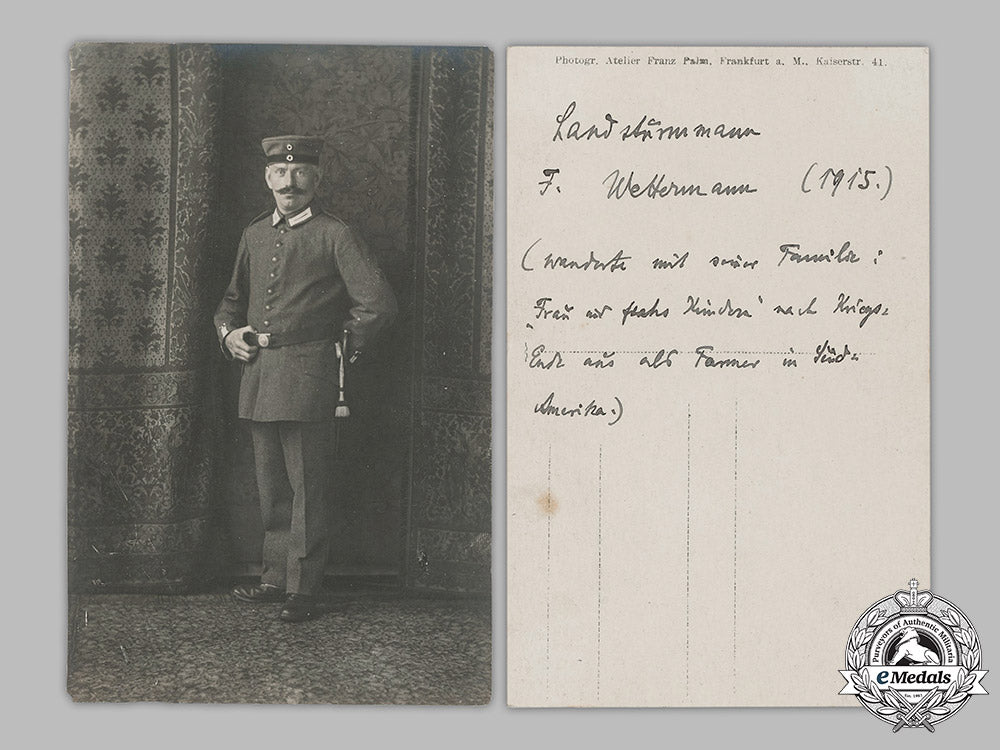 Photogr. Atelier Franz Palm, Frankfurt a. M., Kaiserstr. 41.
Landstürmmann
F. Wettermann (1915.)
(wanderte mit seiner Familie:
"Frau und sechs Kindern" nach Kriegs-
Ende aus als Farmer in Süd-
Amerika.)
Purveyors of Authentic Militaria
eMedals